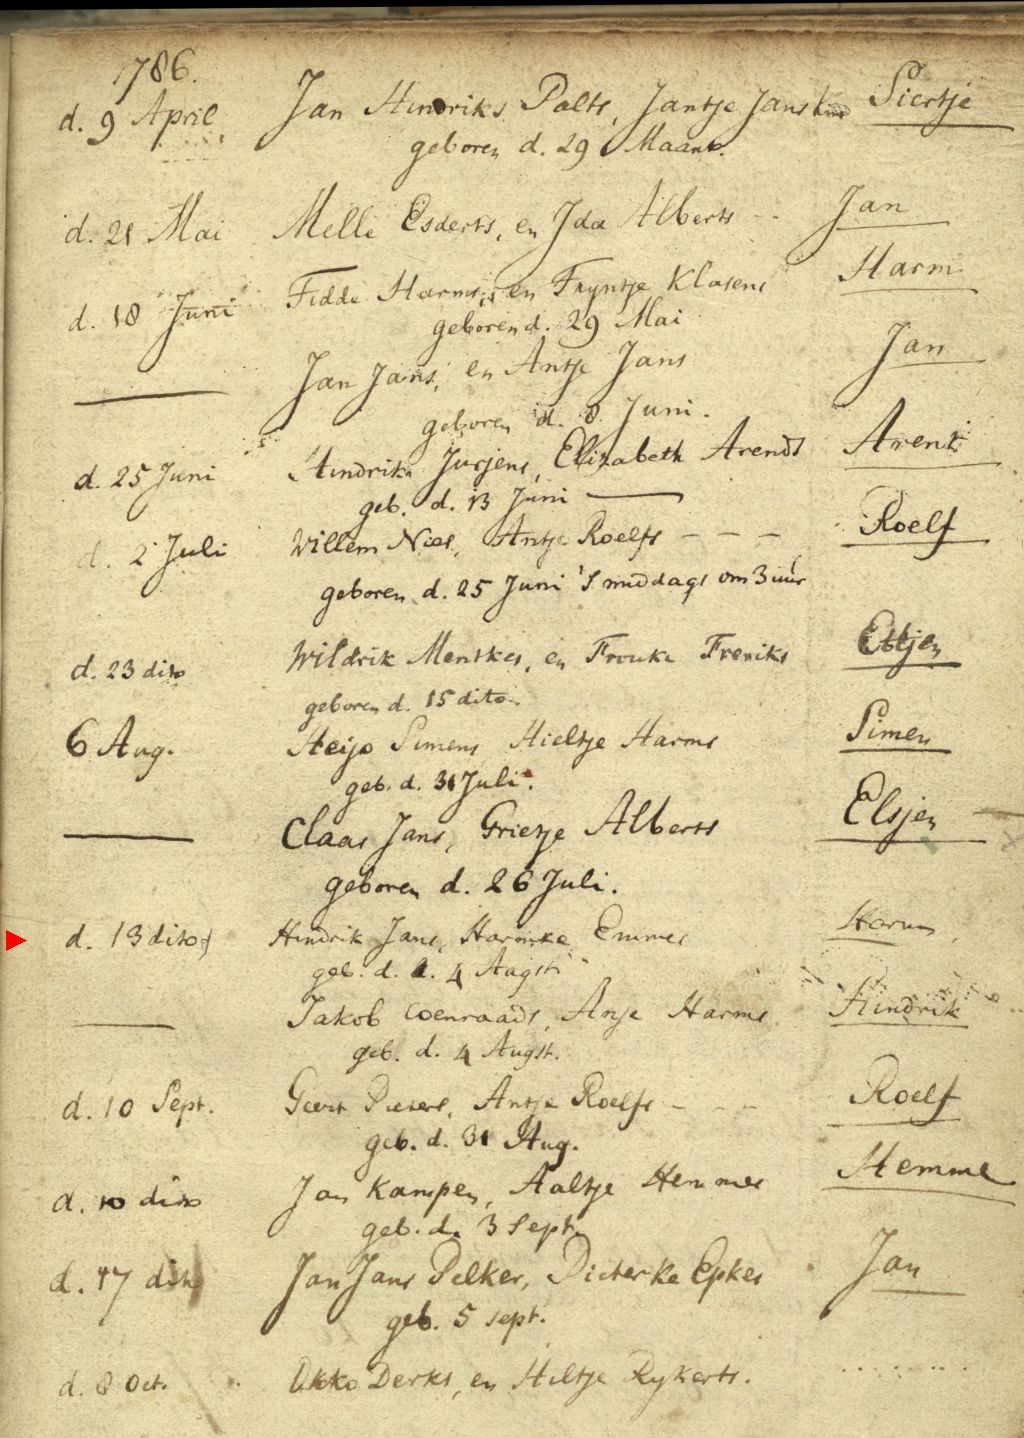 1786.
d. 9 April Jan Hindriks Palts, Jantje Jans kind Siertje
geboren d. 29 Maart.
d. 21 Mai Melle Esderts, en Ida Alberts Jan
d. 18 Juni Fidde Harms, en Fryntje Klasens Harm
geboren d. 29 Mai
Jan Jans, en Antje Jans Jan
geboren d. 8 Juni.
d. 25 Juni Hindrik Jurjens, Elizabeth Arends Arent
geb. d. 13 Juni
d. 2 Juli Willem Nies, Antje Roelfs - - - Roelf
geboren d. 25 Juni 's middags om 3 uur
d. 23 dito Wildrik Menskes, en Frouke Freriks Ettjen
geboren d. 15 dito
6 Aug. Heijo Simens Hieltje Harms Simen
geb. d. 31 Juli.
Claas Jans, Grietje Alberts Elsjen
geboren d. 26 Juli.
d. 13 dito Hindrik Jans, Harmke Emmes Harm
geb. d. 4 Augst
Jakob Coenraads, Anje Harms Hindrik
geb. d. 4 Augst.
d. 10 Sept. Geert Pieters, Antje Roelfs - - - Roelf
geb. d. 31 Aug.
d. 10 dito Jan Kampen, Aaltje Hemmes Hemme
geb. d. 3 Sept.
d. 17 dito Jan Jans Pelker, Pieterke Epkes Jan
geb. 5 sept.
d. 8 Oct. Okko Derks, en Hiltje Rykerts.